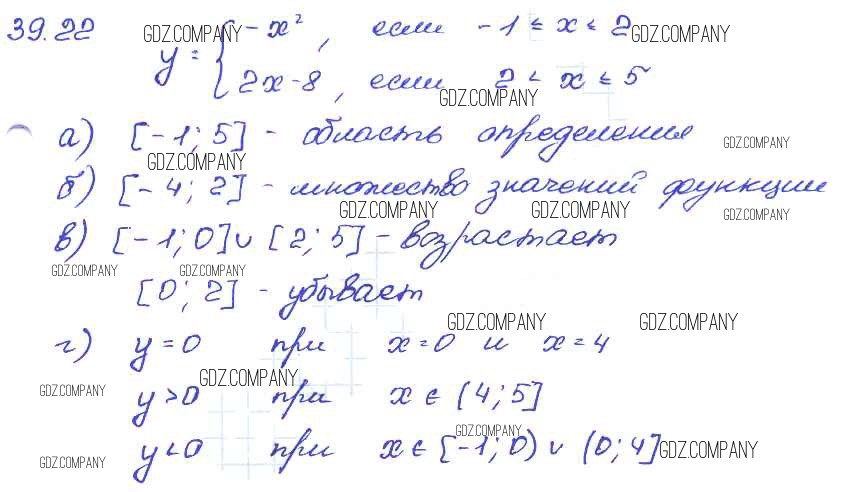 39.22 GDZ.COMPANY -x², если -1 ≤ x ≤ 2 GDZ.COMPANY
y = {
2x-8, если 2 < x ≤ 5
GDZ.COMPANY
а) [-1; 5] - область определения GDZ.COMPANY
GDZ.COMPANY
б) [-4; 2] - множество значений функции
GDZ.COMPANY GDZ.COMPANY GDZ.COMPANY
в) [-1; 0] ∪ [2; 5] - возрастает
GDZ.COMPANY GDZ.COMPANY
[0; 2] - убывает
GDZ.COMPANY GDZ.COMPANY
г) y = 0 при x = 0 и x = 4
GDZ.COMPANY GDZ.COMPANY
y > 0 при x ∈ (4; 5]
GDZ.COMPANY
y < 0 при x ∈ [-1; 0) ∪ (0; 4] GDZ.COMPANY
GDZ.COMPANY